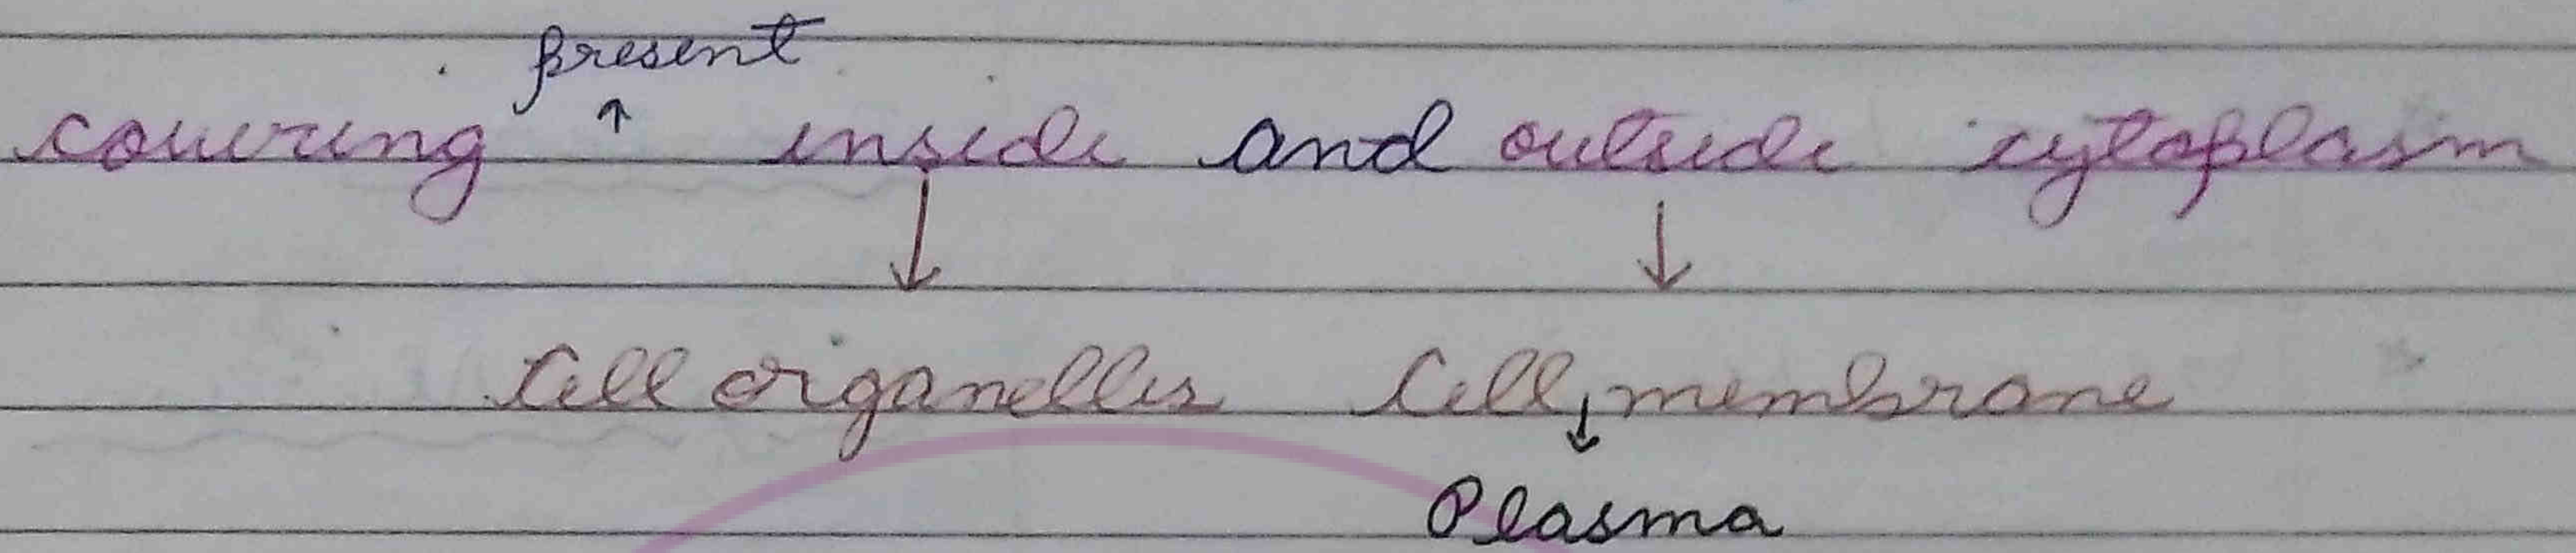 present
covering ↑ inside and outside cytoplasm
↓ ↓
Cell organelles Cell membrane
↓
Plasma